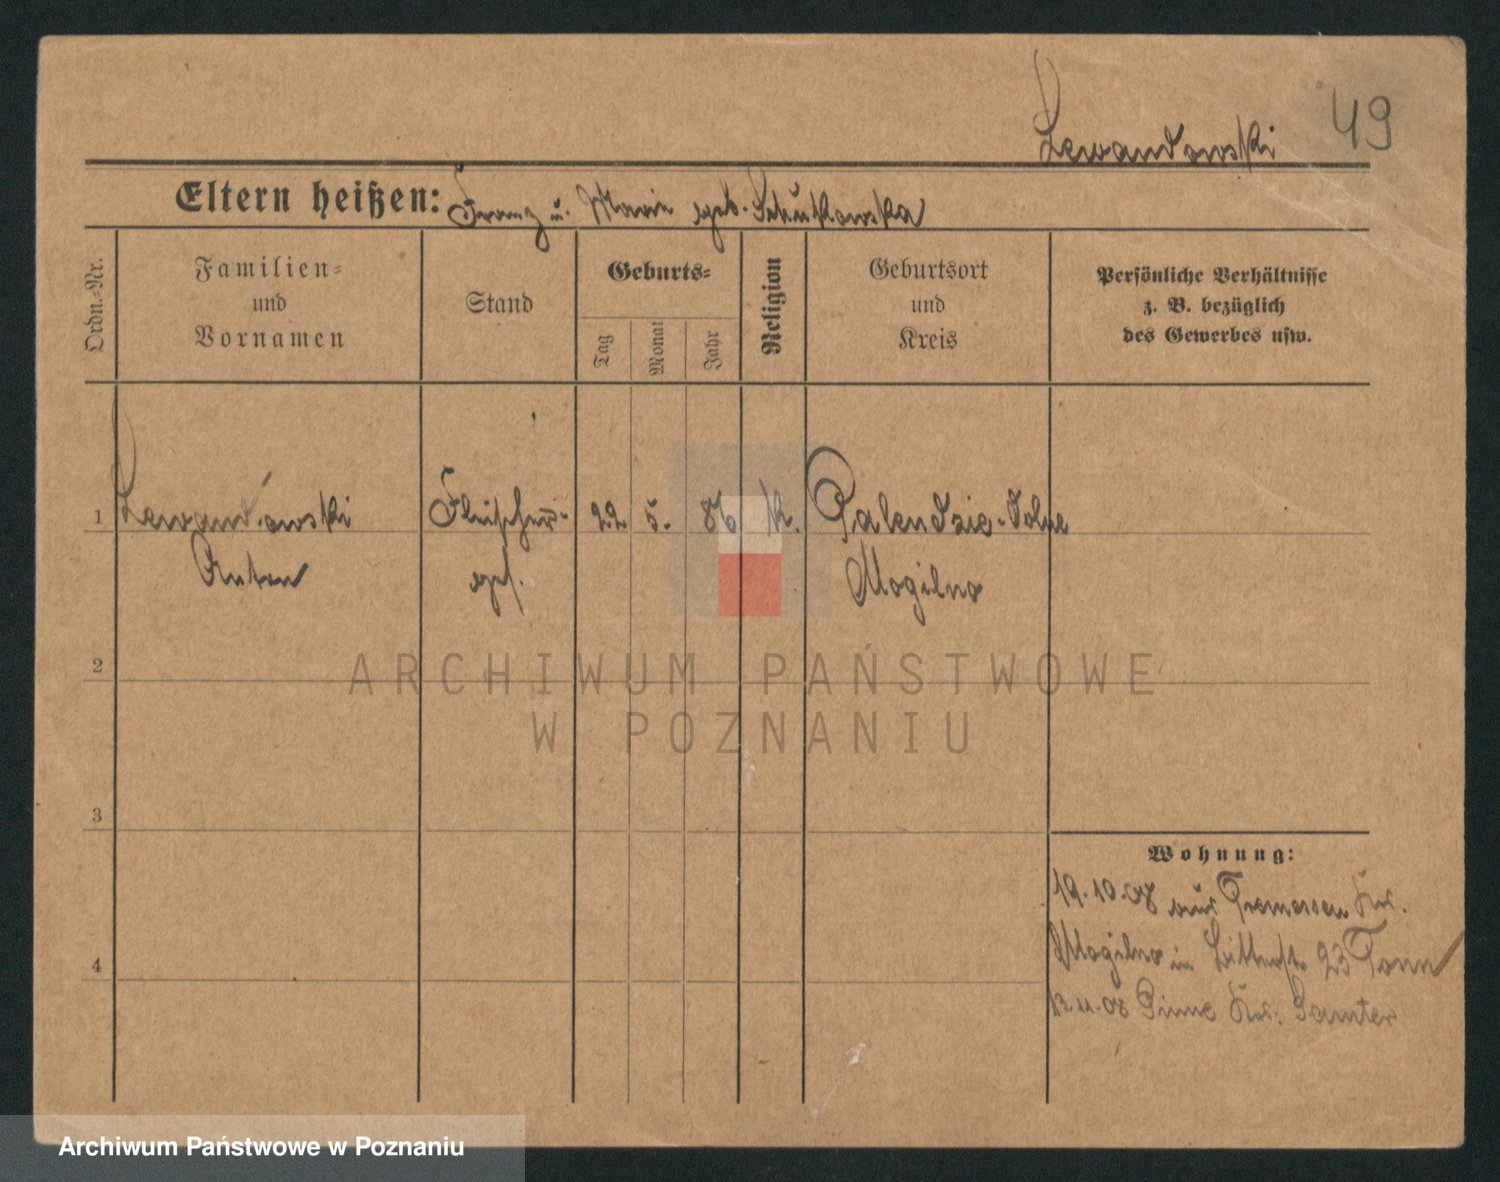 49
Lewandowski
Eltern heißen: Franz u. Marie geb.
Ordn.-Nr.
Familien-
und
Vornamen
Stand
Geburts-
Tag
Monat
Jahr
Religion
Geburtsort
und
Kreis
Persönliche Verhältnisse
z. B. bezüglich
des Gewerbes usw.
1 Lewandowski Fleischer- 22. 5. 86 k. Palendzie-Dolne
Anton ges. Mogilno
2
ARCHIWUM PAŃSTWOWE
W POZNANIU
3
Wohnung:
19.10.08 aus Tremessen Krs.
Mogilno in 23
4
13.11.08 Pinne Krs. Samter
Archiwum Państwowe w Poznaniu